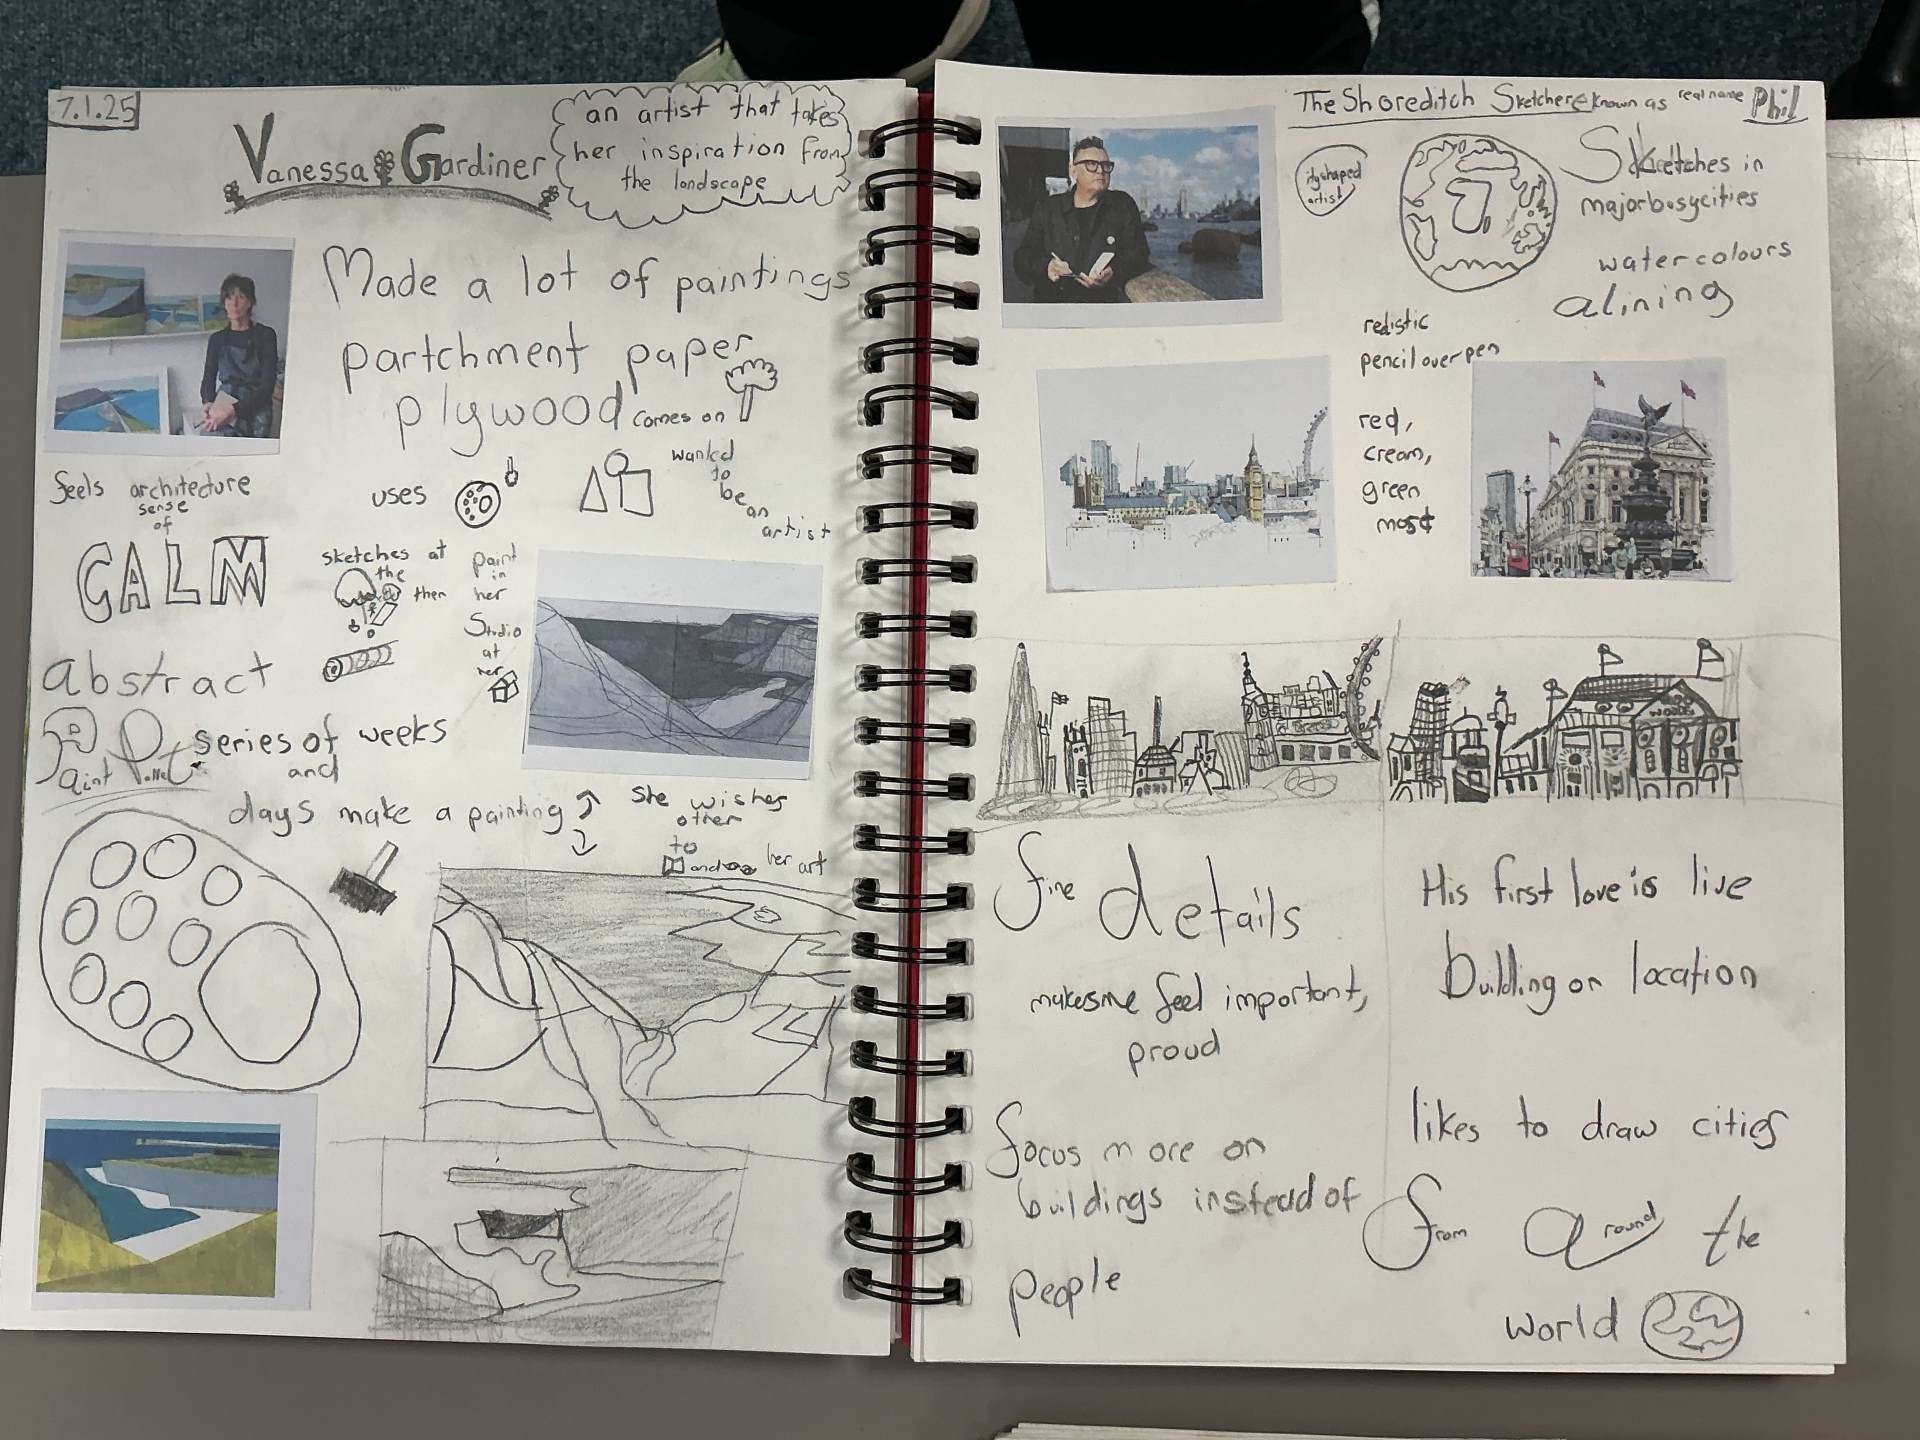 7.1.25
Vanessa Gardiner
an artist that takes
her inspiration from
the landscape
Made a lot of paintings
partchment paper
plywood comes on
feels architecture
sense
of
CALM
uses
wanted
to
be
an
artist
sketches at
the
then
paint
in
her
Studio
at
her
abstract
Paint Pallet
series of weeks
and
days make a painting
She wishes
other
to
and
her art
The Shoreditch Sketcher known as real name Phil
city shaped
artist
Sketches in
major busy cities
watercolours
alining
realistic
pencil over pen
red,
cream,
green
most
fine details
makes me feel important,
proud
focus more on
buildings instead of
people
His first love is live
building on location
likes to draw cities
from around the
world